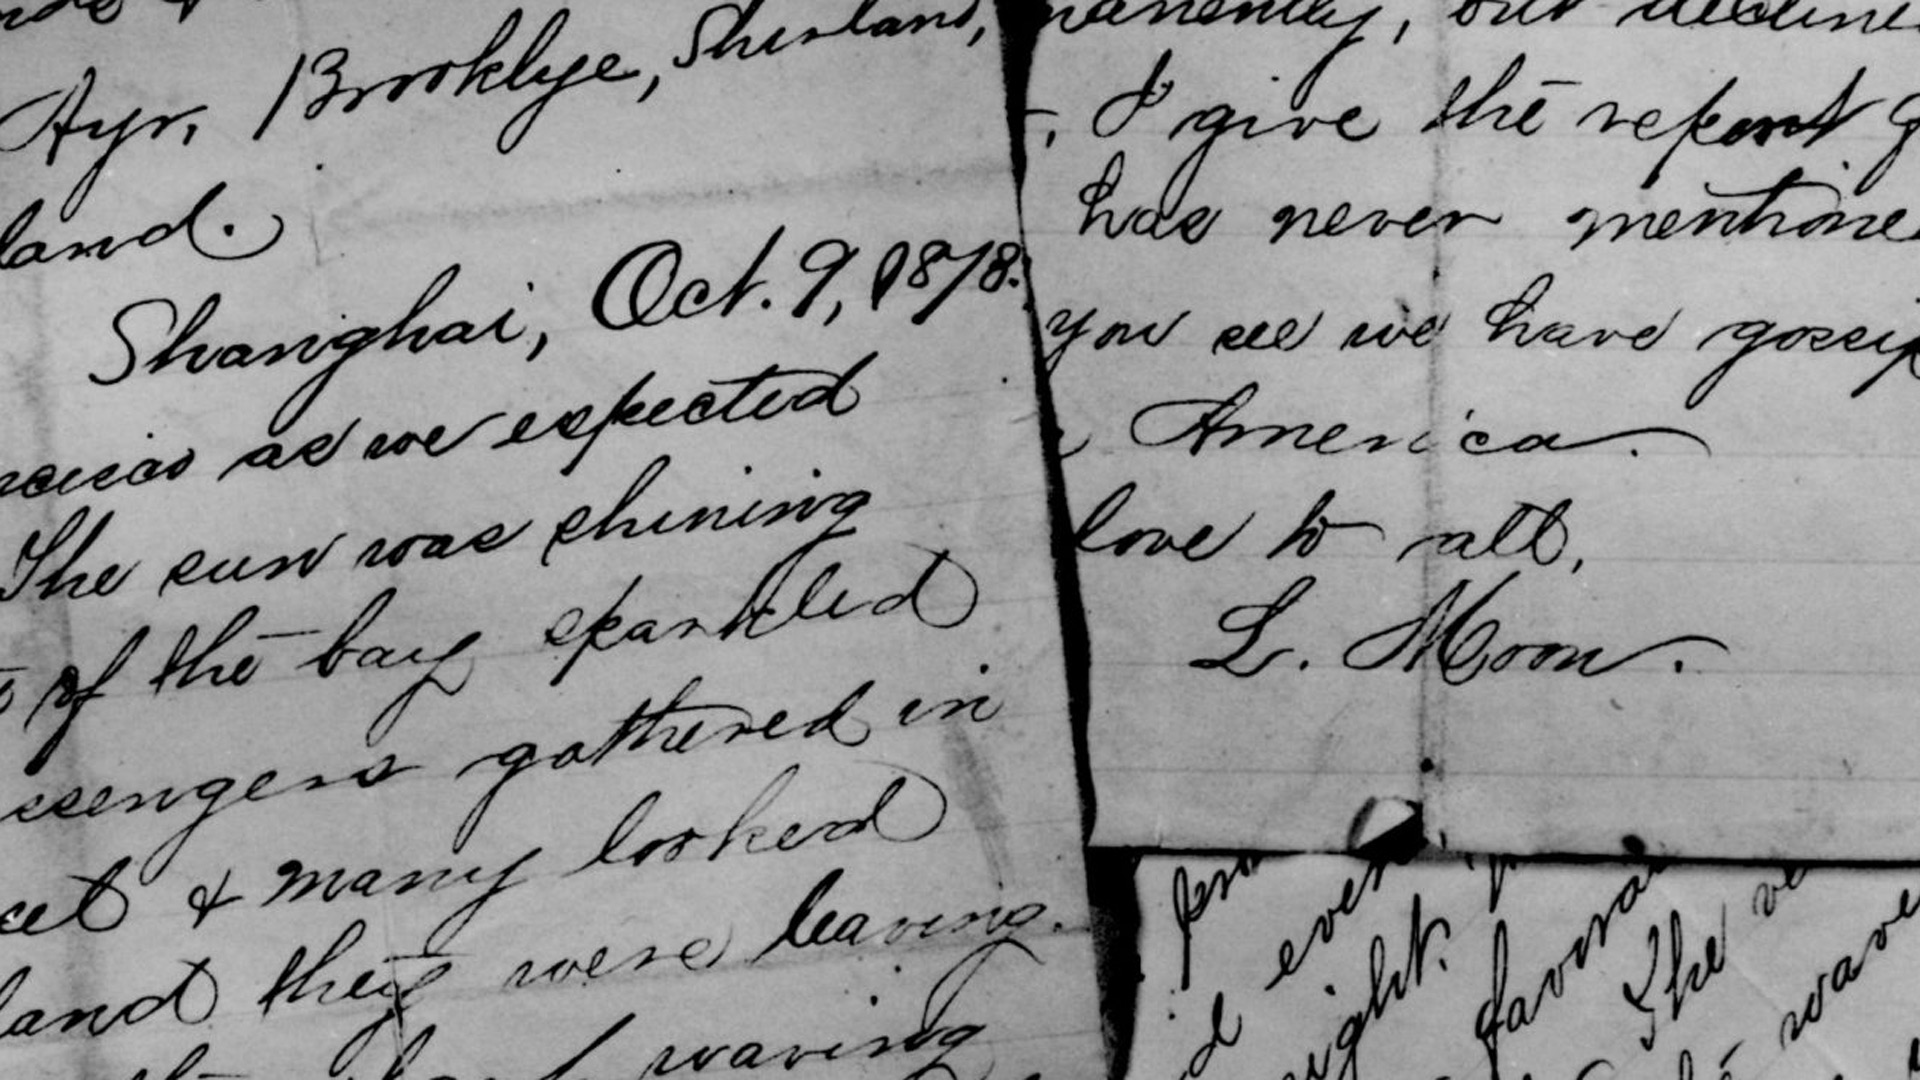 Ayr, Brooklye, Shirland,
land.
Shanghai, Oct. 9, 1878.
as we expected
The sun was shining
of the bay sparkled
ssengers gathered in
& many looked
land they were leaving.
waving
manently, but decline
I give the report
has never mentione
you see we have gossip
America.
love to all,
L. Moon.
even
ight.
favora
The ve
wave